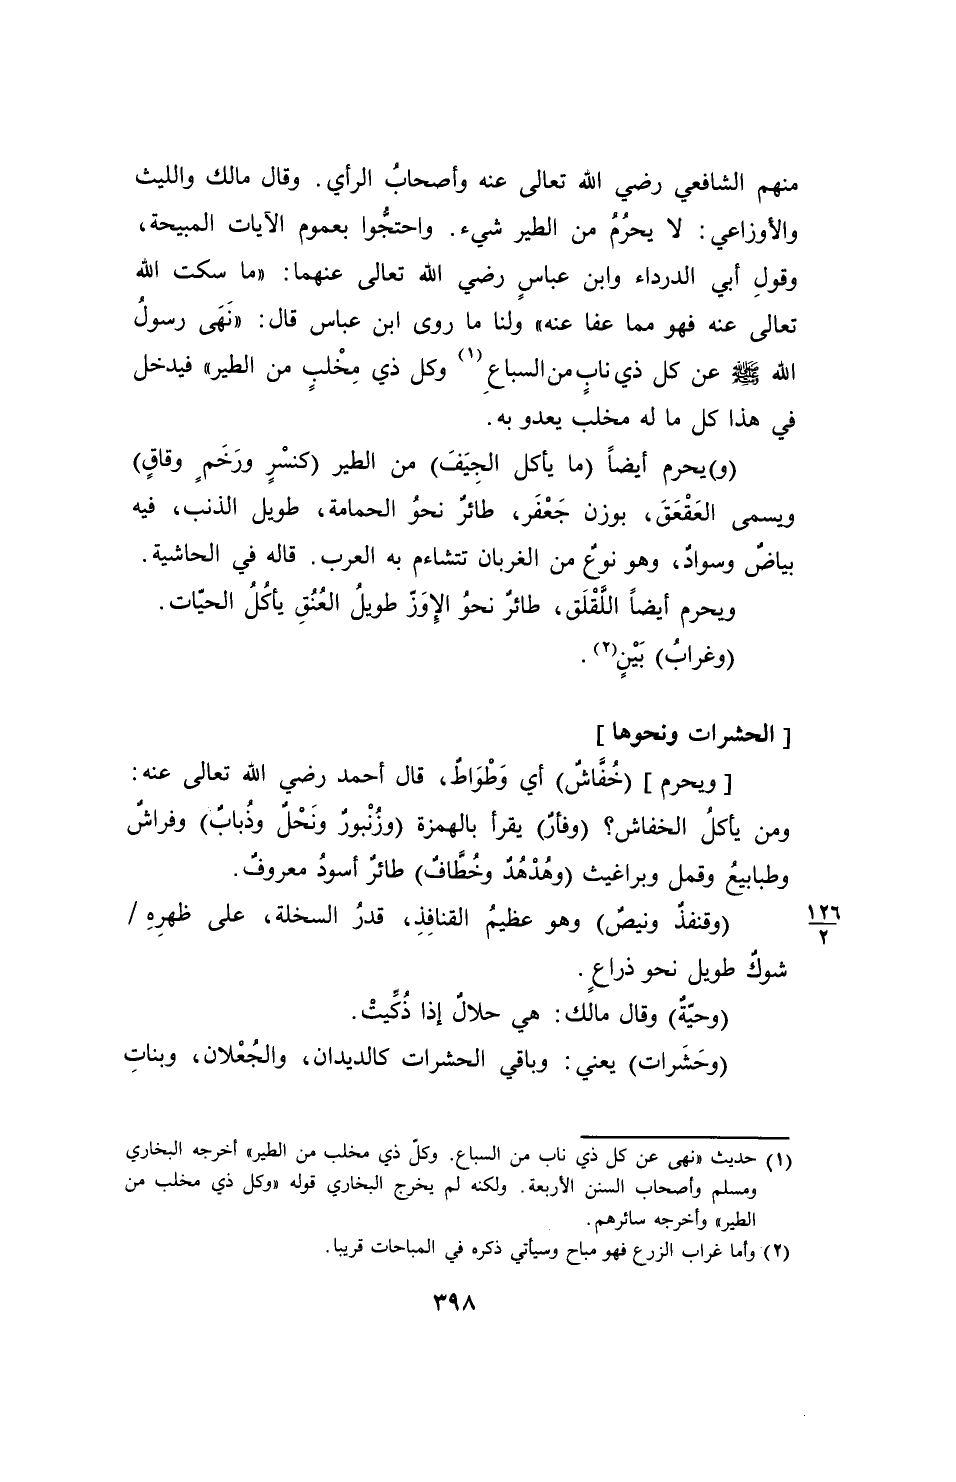 منهم الشافعي رضي الله تعالى عنه وأصحابُ الرأي. وقال مالك والليث
والأوزاعي: لا يحرُمُ من الطير شيء. واحتجُّوا بعموم الآيات المبيحة،
وقولِ أبي الدرداء وابن عباسٍ رضي الله تعالى عنهما: «ما سكت الله
تعالى عنه فهو مما عفا عنه» ولنا ما روى ابن عباس قال: «نَهَى رسولُ
الله ﷺ عن كل ذي نابٍ من السباعِ(١) وكل ذي مِخْلبٍ من الطير» فيدخل
في هذا كل ما له مخلب يعدو به.
(و)يحرم أيضاً (ما يأكل الجِيَفَ) من الطير (كنسْرٍ ورَخَمٍ وقاقٍ)
ويسمى العَقْعَقَ، بوزن جَعْفَر، طائرٌ نحوُ الحمامة، طويل الذنب، فيه
بياضٌ وسوادٌ، وهو نوعٌ من الغربان تتشاءم به العرب. قاله في الحاشية.
ويحرم أيضاً اللَّقْلَق، طائرٌ نحوُ الإوَزّ طويلُ العُنُقِ يأكُلُ الحيّات.
(وغرابُ) بَيْنٍ(٢).
[ الحشرات ونحوها ]
[ ويحرم ] (خُفَّاشٌ) أي وَطْوَاطٌ، قال أحمد رضي الله تعالى عنه:
ومن يأكلُ الخفاش؟ (وفأرٌ) يقرأ بالهمزة (وزُنْبورٌ ونَحْلٌ وذُبابٌ) وفراشٌ
وطبابيعُ وقمل وبراغيث (وهُدْهُدٌ وخُطَّافٌ) طائرٌ أسودُ معروفٌ.
(وقنفذٌ ونيصٌ) وهو عظيمُ القنافِذِ، قدرُ السخلة، على ظهرِهِ /
١٢٦
٢
شوكٌ طويل نحو ذراعٍ.
(وحيّةٌ) وقال مالك: هي حلالٌ إذا ذُكِّيتْ.
(وحَشَرات) يعني: وباقي الحشرات كالديدان، والجُعْلان، وبناتِ
(١) حديث «نهى عن كل ذي ناب من السباع. وكلّ ذي مخلب من الطير» أخرجه البخاري
ومسلم وأصحاب السنن الأربعة. ولكنه لم يخرج البخاري قوله «وكل ذي مخلب من
الطير» وأخرجه سائرهم.
(٢) وأما غراب الزرع فهو مباح وسيأتي ذكره في المباحات قريبا.
٣٩٨